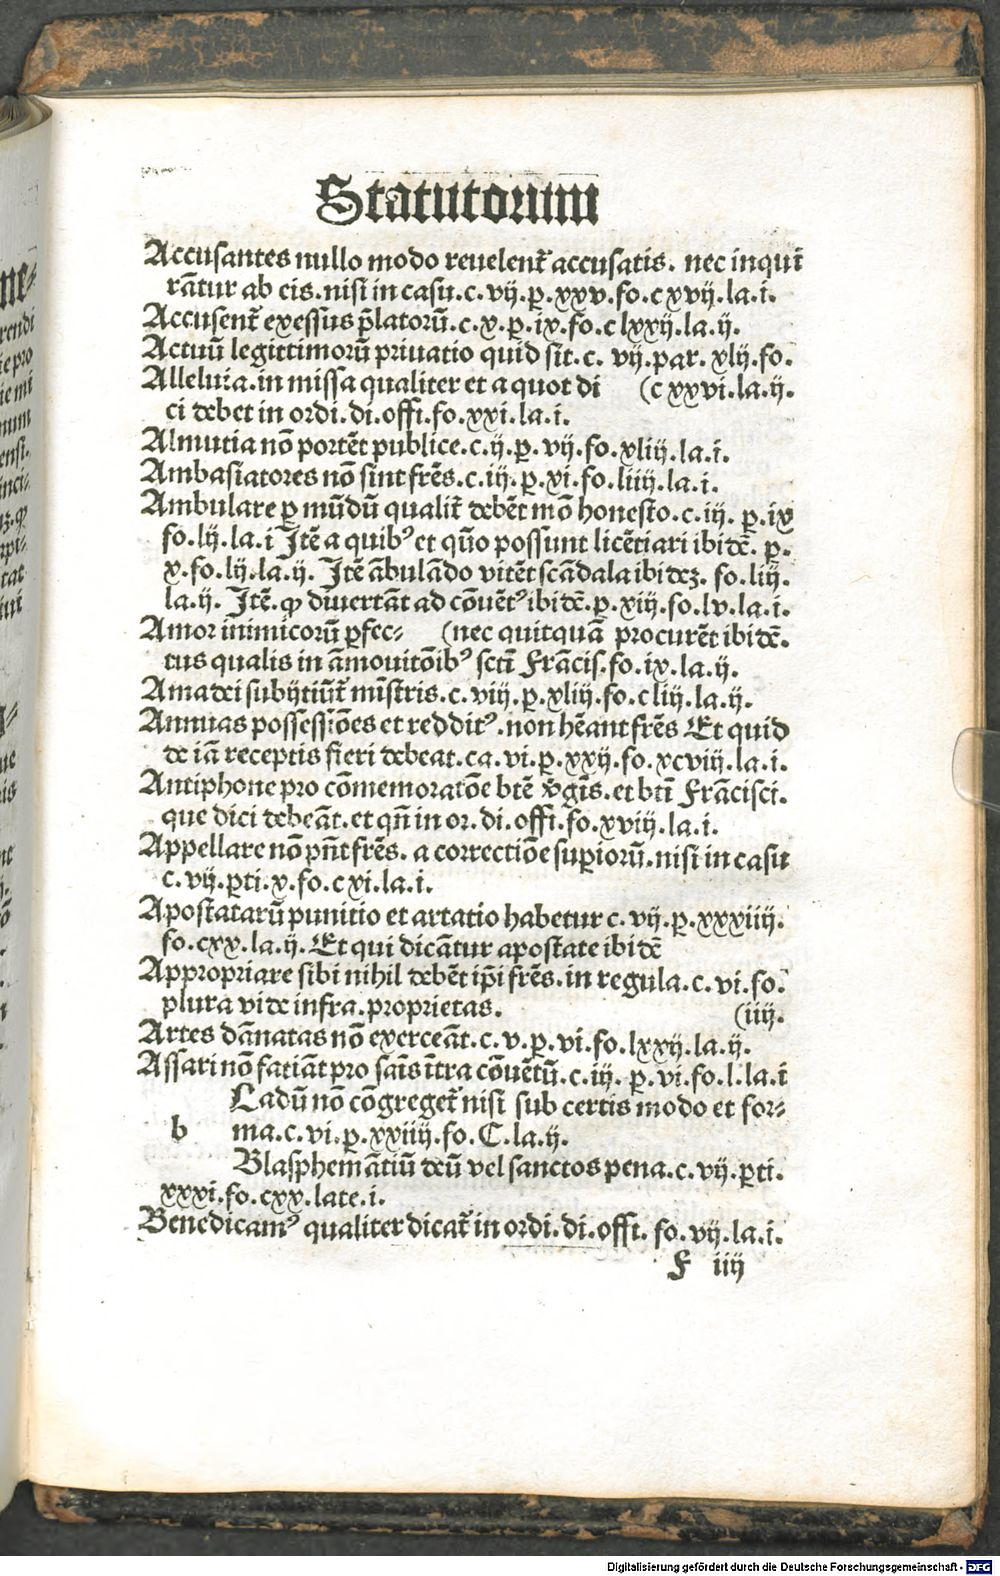 Statutorum
Accusantes nullo modo reuelent᷑ accusatis. nec inqui
rãtur ab eis.nisi in casu.c.vij.ꝑ.xxv.fo.cxvij.la.i.
Accusent᷑ exessus p̃latorũ.c.x.ꝑ.ix.fo.clxxij.la.ij.
Actuũ legittimorũ priuatio quid sit.c. vij.par. xlij.fo.
Alleluia.in missa qualiter et a quot di (cxxvi.la.ij.
ci debet in ordi.di.offi.fo.xxi.la.i.
Almutia nõ portẽt publice.c.ij.ꝑ.vij.fo.xliij.la.i.
Ambasiatores nõ sint frẽs.c.iij.ꝑ.xi.fo.liiij.la.i.
Ambulare ꝑ mũdũ qualit᷑ debẽt mõ honesto.c.iij. ꝑ.ix
fo.lij.la.i Itẽ a quibꝰ et qũo possunt licẽtiari ibidẽ. ꝑ.
x.fo.lij.la.ij. Itẽ ãbulãdo vitẽt scãdala ibidez. fo.liij.
la.ij. Itẽ. ꝙ diuertãt ad cõuẽtꝰ ibidẽ.ꝑ.xiij.fo.lv.la.i.
Amor inimicorũ ꝑfec⸗ (nec quitquã procurẽt ibidẽ.
tus qualis in ãmouitõibꝰ scti Frãcis.fo.ix.la.ij.
Amadei subijtiũt᷑ mĩstris.c.viij.ꝑ.xliij.fo.cliij.la.ij.
Annuas possessiões etredditꝰ.non hẽant frẽs Et quid
de iã receptis fieri debeat.ca.vi.ꝑ.xxij.fo.xcviij.la.i.
Antiphone pro cõmemoratõe btẽ v̾gĩs.et bti Frãcisci.
que dici debeãt.et qñ in or.di.offi.fo.xviij.la.i.
Appellare nõ pñt frẽs. a correctiõe superiorũ.nisi in casu
c.vij.ꝑti.x.fo.cxi.la.i.
Apostatarũ punitio et artatio habetur c.vij.ꝑ.xxxiiij.
fo.cxx.la.ij. Et qui dicãtur apostate ibidẽ
Appropriare sibi nihil debẽt ip̃i frẽs.in regula.c.vi.fo.
plura vide infra.proprietas. (iij.
Artes dãnatas nõ exerceãt.c.v.ꝑ.vi.fo.lxxij.la.ij.
Assari nõ fatiãt pro sãis ĩtra cõuẽtũ.c.iij. ꝑ.vi.fo.l.la.i
Ladũ nõ cõgreget᷑ nisi sub certis modo et for⸗
b ma.c.vi.ꝑ.xxiiij.fo.C.la.ij.
Blasphemãtiũ deũ vel sanctos pena.c.vij.ꝑti.
xxxi.fo.cxx.late.i.
Benedicamꝰ qualiter dicat᷑ in ordi.di.offi. fo.vij.la.i.
F iij
Digitalisierung gefördert durch die Deutsche Forschungsgemeinschaft - DFG